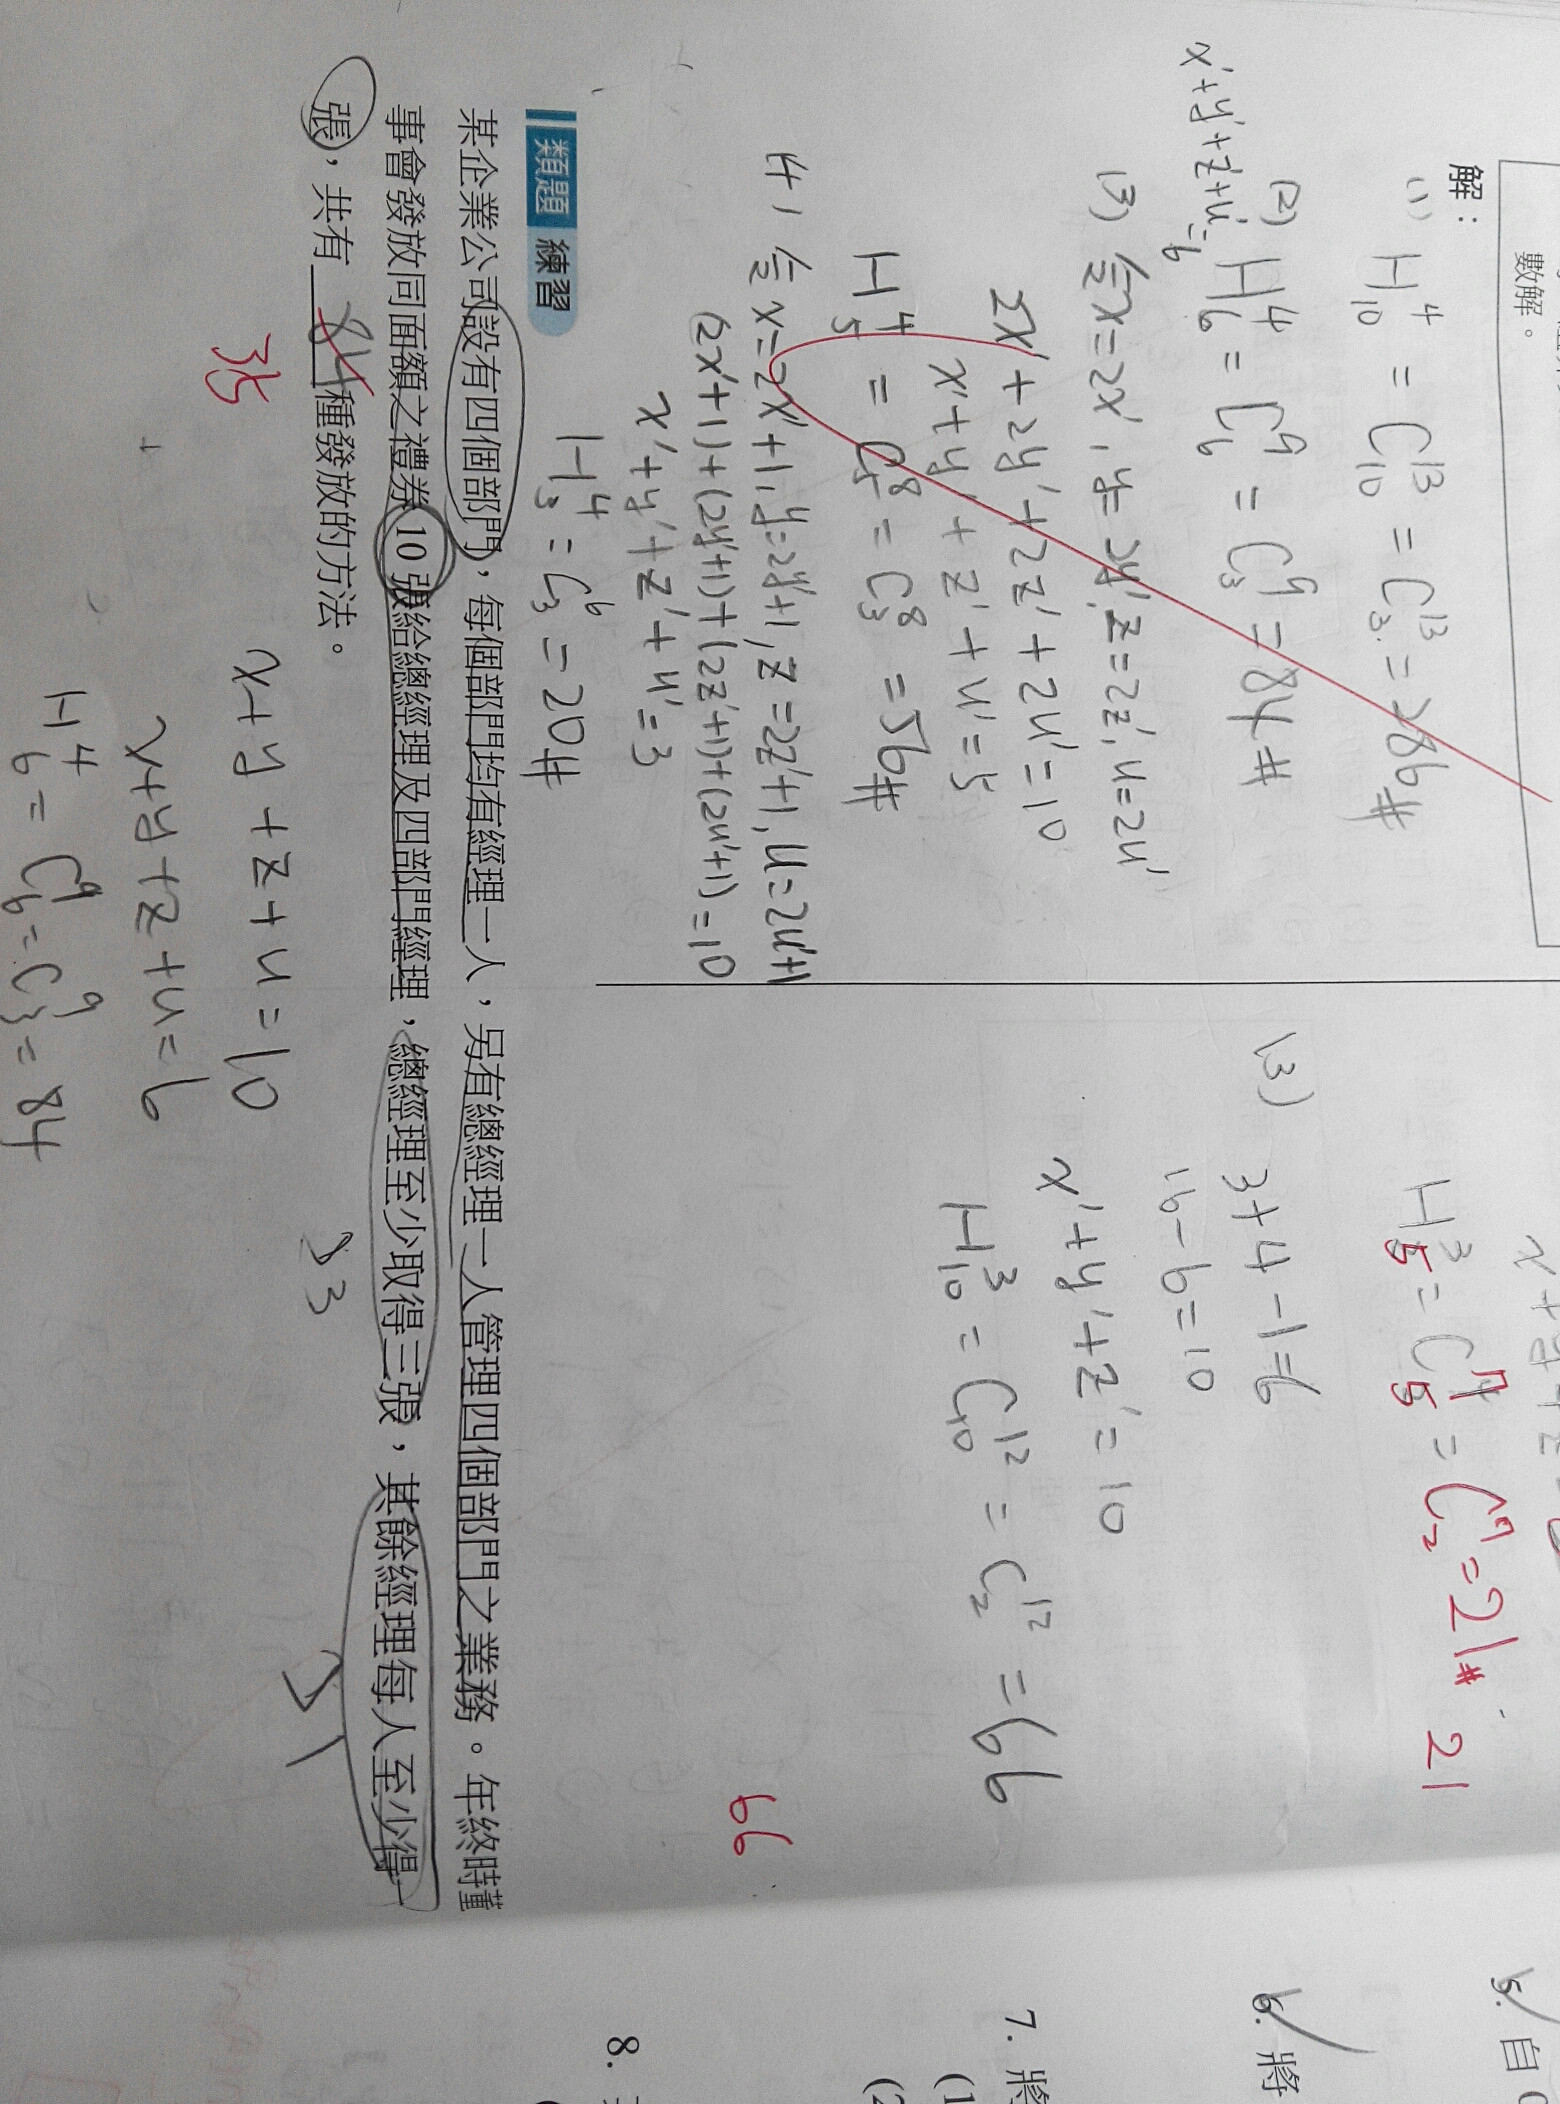 數解。
解：
(1) H⁴₁₀ = C¹³₁₀ = C¹³₃ = 286#
(2) H⁴₆ = C⁹₆ = C⁹₃ = 84#
x'+y'+z'+u'=6
(3) 令x=2x', y=2y', z=2z', u=2u'
2x'+2y'+2z'+2u'=10
x'+y'+z'+u'=5
H⁴₅ = C⁸₅ = C⁸₃ = 56#
4) 令x=2x'+1, y=2y'+1, z=2z'+1, u=2u'+1
(2x'+1)+(2y'+1)+(2z'+1)+(2u'+1)=10
x'+y'+z'+u'=3
H⁴₃ = C⁶₃ = 20#
H³₅ = C⁷₅ = C⁷₂ = 21# 21
(3) 3+4-1=6
16-6=10
x'+y'+z'=10
H³₁₀ = C¹²₁₀ = C¹²₂ = 66
66
類題 練習
某企業公司設有四個部門，每個部門均有經理一人，另有總經理一人管理四個部門之業務。年終時董
事會發放同面額之禮券10張給總經理及四部門經理，總經理至少取得三張，其餘經理每人至少得一
張，共有 84 種發放的方法。
35
x+y+z+u=10
x+y+z+u=6
H⁴₆ = C⁹₆ = C⁹₃ = 84
5. 自
6. 將
7. 將
(1
(2
8.